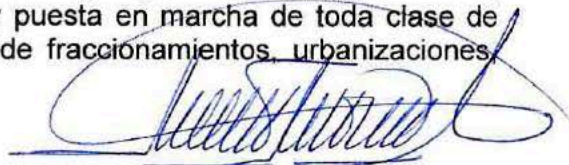 puesta en marcha de toda clase de
de fraccionamientos, urbanizaciones,